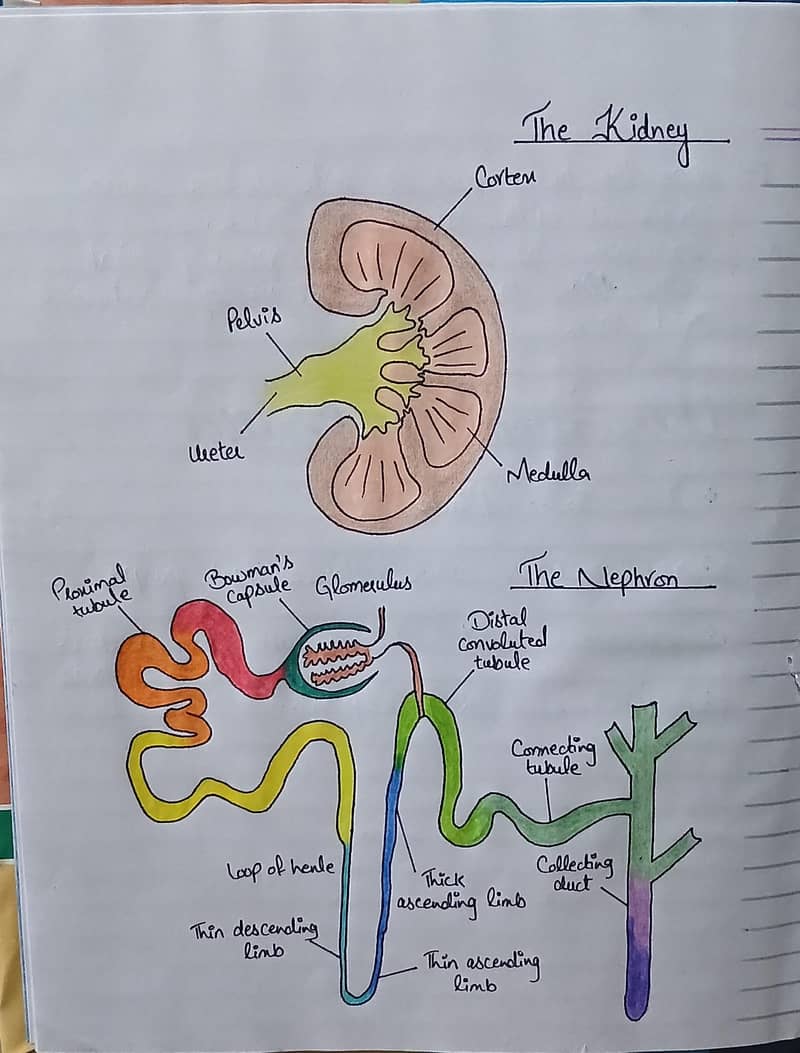 The Kidney
Cortex
Pelvis
Ureter
Medulla
The Nephron
Proximal
tubule
Bowman's
Capsule
Glomerulus
Distal
convoluted
tubule
Connecting
tubule
Collecting
duct
Loop of henle
Thick
ascending limb
Thin descending
limb
Thin ascending
limb